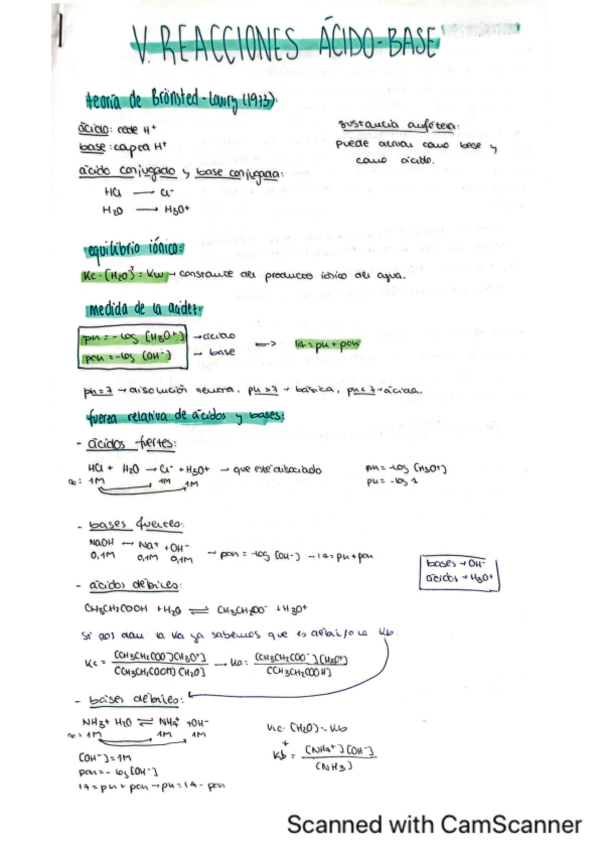 V. REACCIONES ÁCIDO-BASE
teoría de Brönsted-Lowry (1923):
ácido: cede H⁺
base: capta H⁺
ácido conjugado y base conjugada:
HCl → Cl⁻
H₂O → H₃O⁺
sustancia anfótera:
puede actuar como base y
como ácido.
equilibrio iónico:
Kc · [H₂O]² = Kw → constante del producto iónico del agua.
medida de la acidez:
pH = -log [H₃O⁺] → ácido
pOH = -log [OH⁻] → base
=> 14 = pH + pOH
pH = 7 → disolución neutra. pH > 7 → básica, pH < 7 → ácida.
fuerza relativa de ácidos y bases:
- ácidos fuertes:
HCl + H₂O → Cl⁻ + H₃O⁺ → que esté disociado
1M 1M 1M
pH = -log [H₃O⁺]
pH = -log 1
- bases fuertes:
NaOH → Na⁺ + OH⁻
0,1M 0,1M 0,1M
→ pOH = -log [OH⁻] → 14 = pH + pOH
bases → OH⁻
ácidos → H₃O⁺
- ácidos débiles:
CH₃CH₂COOH + H₂O ⇌ CH₃CH₂COO⁻ + H₃O⁺
Si nos dan la Ka ya sabemos que es débil / o la Kb.
Kc = [CH₃CH₂COO⁻][H₃O⁺] / [CH₃CH₂COOH][H₂O] → Ka = [CH₃CH₂COO⁻][H₃O⁺] / [CH₃CH₂COOH]
- bases débiles:
NH₃ + H₂O ⇌ NH₄⁺ + OH⁻
1M 1M 1M
[OH⁻] = 1M
pOH = -log [OH⁻]
14 = pH + pOH → pH = 14 - pOH
Kc · [H₂O] = Kb
Kb = [NH₄⁺][OH⁻] / [NH₃]
Scanned with CamScanner